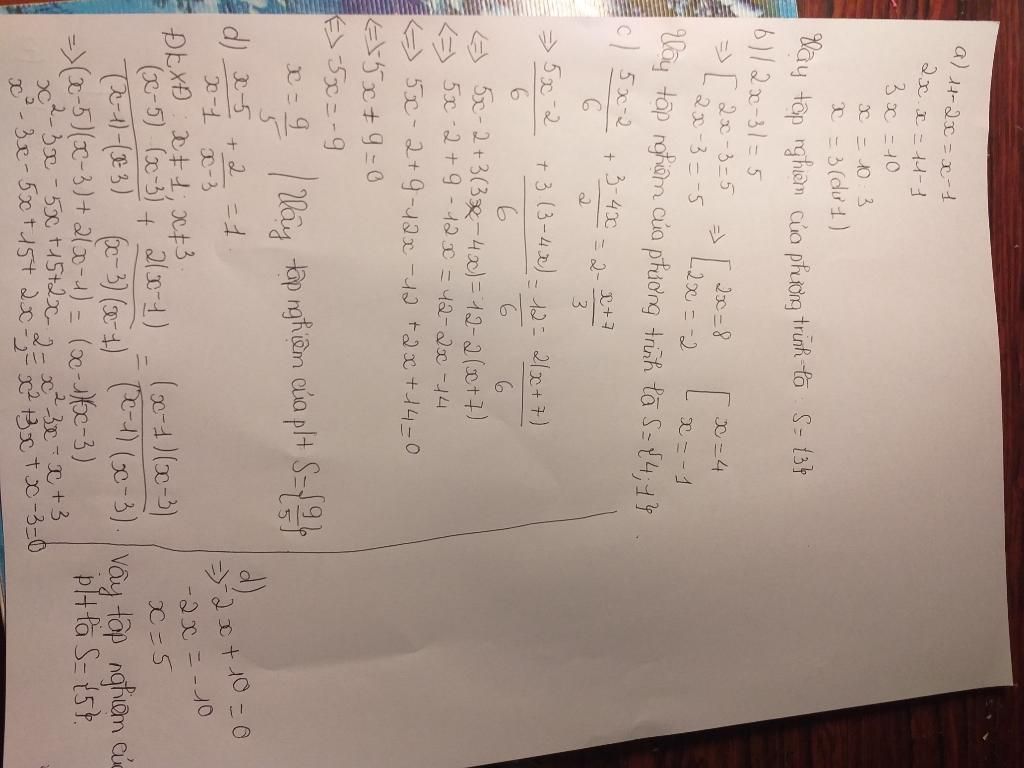 a) 11-2x = x-1
2x·x = 11-1
3x = 10
x = 10:3
x = 3(dư 1)
Vậy tập nghiệm của phương trình là: S={3}
b) |2x-3| = 5
=> [ 2x-3=5 => [ 2x=8 [ x=4
[ 2x-3=-5 [ 2x=-2 [ x=-1
Vậy tập nghiệm của phương trình là S={4;-1}
c) (5x-2)/6 + (3-4x)/2 = 2 - (x+7)/3
=> (5x-2)/6 + 3·(3-4x)/6 = 12/6 = 2(x+7)/6
<=> 5x-2+3(3-4x)=12-2(x+7)
<=> 5x-2+9-12x = 12-2x-14
<=> 5x-2+9-12x-12+2x+14=0
<=> -5x+9=0
<=> -5x=-9
x = 9/5 / Vậy tập nghiệm của pt S={9/5}
d) (x-5)/(x-1) + 2/(x-3) = 1.
ĐKXĐ: x≠1; x≠3.
(x-5)·(x-3)/(x-1)·(x-3) + 2(x-1)/(x-3)(x-1) = (x-1)(x-3)/(x-1)(x-3).
=> (x-5)(x-3)+2(x-1) = (x-1)(x-3)
x²-3x-5x+15+2x-2=x²-3x-x+3
x²-3x-5x+15+2x-2-x²+3x+x-3=0
d)
=> -2x+10=0
-2x=-10
x=5
Vậy tập nghiệm củ
pt là S={5}.